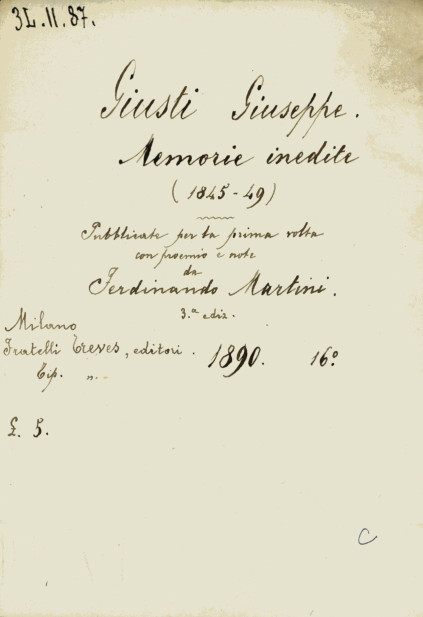 3L.11.87.
Giusti Giuseppe.
Memorie inedite
(1845-49)
Pubblicate per la prima volta
con proemio e note
da
Ferdinando Martini.
3.ª ediz.
Milano
Fratelli Treves, editori. 1890. 16°
Tip. "
£. 5.
C